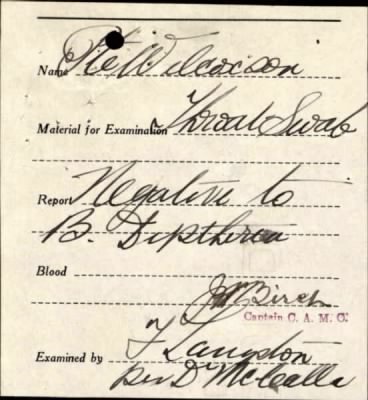 Name Pte Wilcoxson
Material for Examination Throat Swab
Report Negative to
B. Diptheria
Blood
Birch
Captain C. A. M. C.
Examined by Langdon
per D McCalla